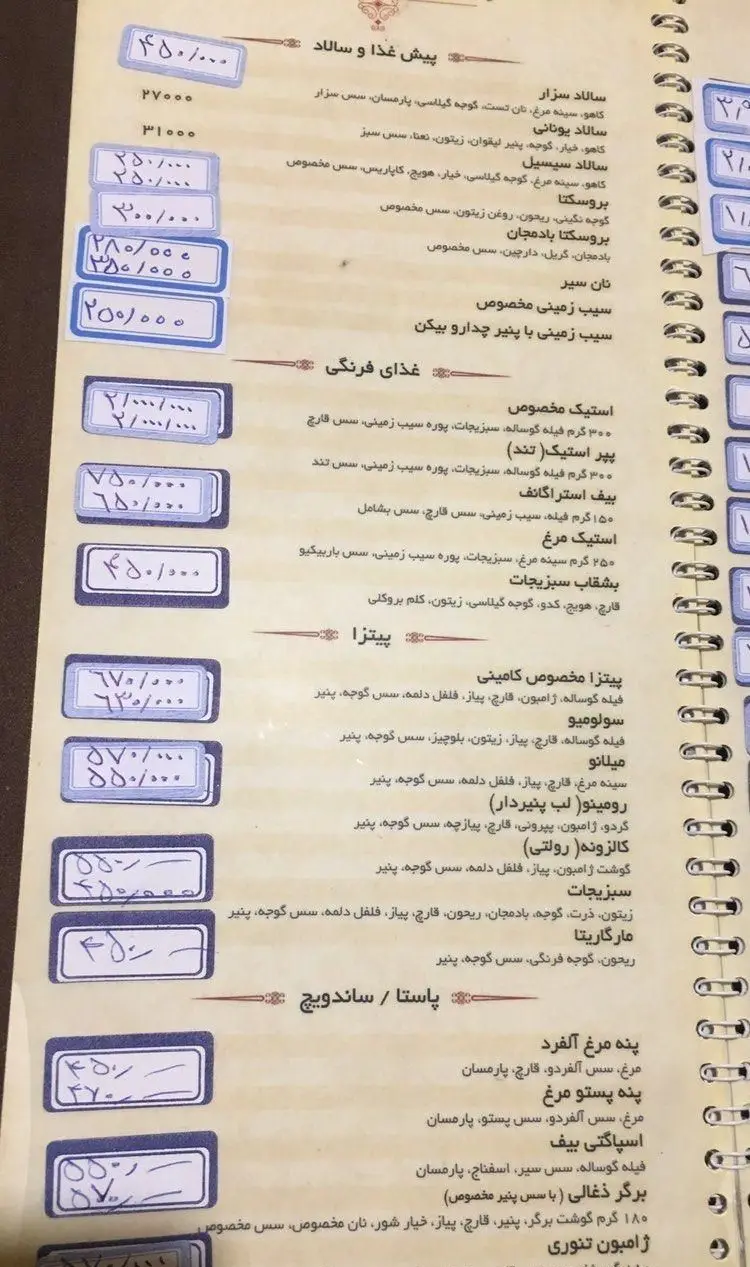 پیش غذا و سالاد
۴۵۰/۰۰۰
سالاد سزار
کاهو، سینه مرغ، نان تست، گوجه گیلاسی، پارمسان، سس سزار
۲۷۰۰۰
سالاد یونانی
کاهو، خیار، گوجه، پنیر لیقوان، زیتون، نعنا، سس سبز
۳۱۰۰۰
سالاد سیسیل
کاهو، سینه مرغ، گوجه گیلاسی، خیار، هویج، کاپاریس، سس مخصوص
۲۵۰/۰۰۰
بروسکتا
گوجه نگینی، ریحون، روغن زیتون، سس مخصوص
۲۵۰/۰۰۰
بروسکتا بادمجان
بادمجان، گریل، دارچین، سس مخصوص
۳۰۰/۰۰۰
نان سیر
۲۸۰/۰۰۰
سیب زمینی مخصوص
۳۸۰/۰۰۰
سیب زمینی با پنیر چدارو بیکن
۲۵۰/۰۰۰
غذای فرنگی
استیک مخصوص
۳۰۰ گرم فیله گوساله، سبزیجات، پوره سیب زمینی، سس قارچ
۲/۰۰۰/۰۰۰
پپر استیک( تند)
۳۰۰ گرم فیله گوساله، سبزیجات، پوره سیب زمینی، سس تند
۲/۰۰۰/۰۰۰
بیف استراگانف
۱۵۰گرم فیله، سیب زمینی، سس قارچ، سس بشامل
۷۵۰/۰۰۰
استیک مرغ
۲۵۰ گرم سینه مرغ، سبزیجات، پوره سیب زمینی، سس باربیکیو
۶۵۰/۰۰۰
بشقاب سبزیجات
قارچ، هویج، کدو، گوجه گیلاسی، زیتون، کلم بروکلی
۴۵۰/۰۰۰
پیتزا
پیتزا مخصوص کامینی
فیله گوساله، ژامبون، قارچ، پیاز، فلفل دلمه، سس گوجه، پنیر
۶۷۰/۰۰۰
سولومیو
فیله گوساله، قارچ، پیاز، زیتون، بلوچیز، سس گوجه، پنیر
۶۳۰/۰۰۰
میلانو
سینه مرغ، قارچ، پیاز، فلفل دلمه، سس گوجه، پنیر
۵۷۰/۰۰۰
رومینو( لب پنیردار)
گردو، ژامبون، پپرونی، قارچ، پیازچه، سس گوجه، پنیر
۵۵۰/۰۰۰
کالزونه( رولتی)
گوشت ژامبون، پیاز، فلفل دلمه، سس گوجه، پنیر
۵۵۰/
سبزیجات
زیتون، ذرت، گوجه، بادمجان، ریحون، قارچ، پیاز، فلفل دلمه، سس گوجه، پنیر
۴۵۰/۰۰۰
مارگاریتا
ریحون، گوجه فرنگی، سس گوجه، پنیر
۴۵۰/
پاستا / ساندویچ
پنه مرغ آلفرد
مرغ، سس آلفردو، قارچ، پارمسان
۴۵۰/
پنه پستو مرغ
مرغ، سس آلفردو، سس پستو، پارمسان
۴۷۰/
اسپاگتی بیف
فیله گوساله، سس سیر، اسفناج، پارمسان
۵۵۰/
برگر ذغالی (با سس پنیر مخصوص)
۱۸۰ گرم گوشت برگر، پنیر، قارچ، پیاز، خیار شور، نان مخصوص، سس مخصوص
۵۷۰/
ژامبون تنوری